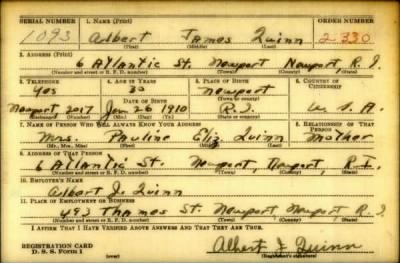 SERIAL NUMBER 1. NAME (Print) ORDER NUMBER
1093 Albert James Quinn 2330
(First) (Middle) (Last)
2. ADDRESS (Print)
6 Atlantic St. Newport Newport R.I.
(Number and street or R. F. D. number) (Town) (County) (State)
3. TELEPHONE 4. AGE IN YEARS 5. PLACE OF BIRTH 6. COUNTRY OF CITIZENSHIP
Yes 30 Newport
(Town or county)
DATE OF BIRTH
Newport 2017 Jan 26 1910 R.I. U.S.A.
(Exchange) (Number) (Mo.) (Day) (Yr.) (State or country)
7. NAME OF PERSON WHO WILL ALWAYS KNOW YOUR ADDRESS 8. RELATIONSHIP OF THAT PERSON
Mrs. Pauline Eliz Quinn Mother
(Mr., Mrs., Miss) (First) (Middle) (Last)
9. ADDRESS OF THAT PERSON
6 Atlantic St. Newport, Newport, R.I.
(Number and street or R. F. D. number) (Town) (County) (State)
10. EMPLOYER'S NAME
Albert J. Quinn
11. PLACE OF EMPLOYMENT OR BUSINESS
493 Thames St. Newport Newport R.I.
(Number and street or R. F. D. number) (Town) (County) (State)
I AFFIRM THAT I HAVE VERIFIED ABOVE ANSWERS AND THAT THEY ARE TRUE.
REGISTRATION CARD
D. S. S. FORM 1 (over) Albert J Quinn
(Registrant's signature)